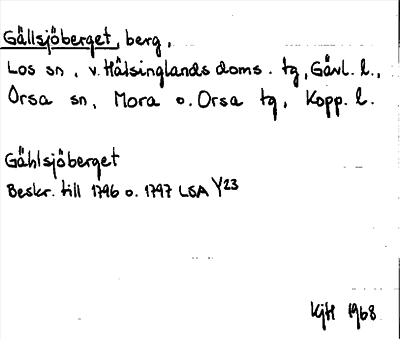 Gällsjöberget, berg,
Los sn, v. Hälsinglands doms. tg, Gävl. l.,
Orsa sn, Mora o. Orsa tg, Kopp. l.
Gåhlsjöberget
Beskr. till 1796 o. 1797 LSA Y23
KjH 1968